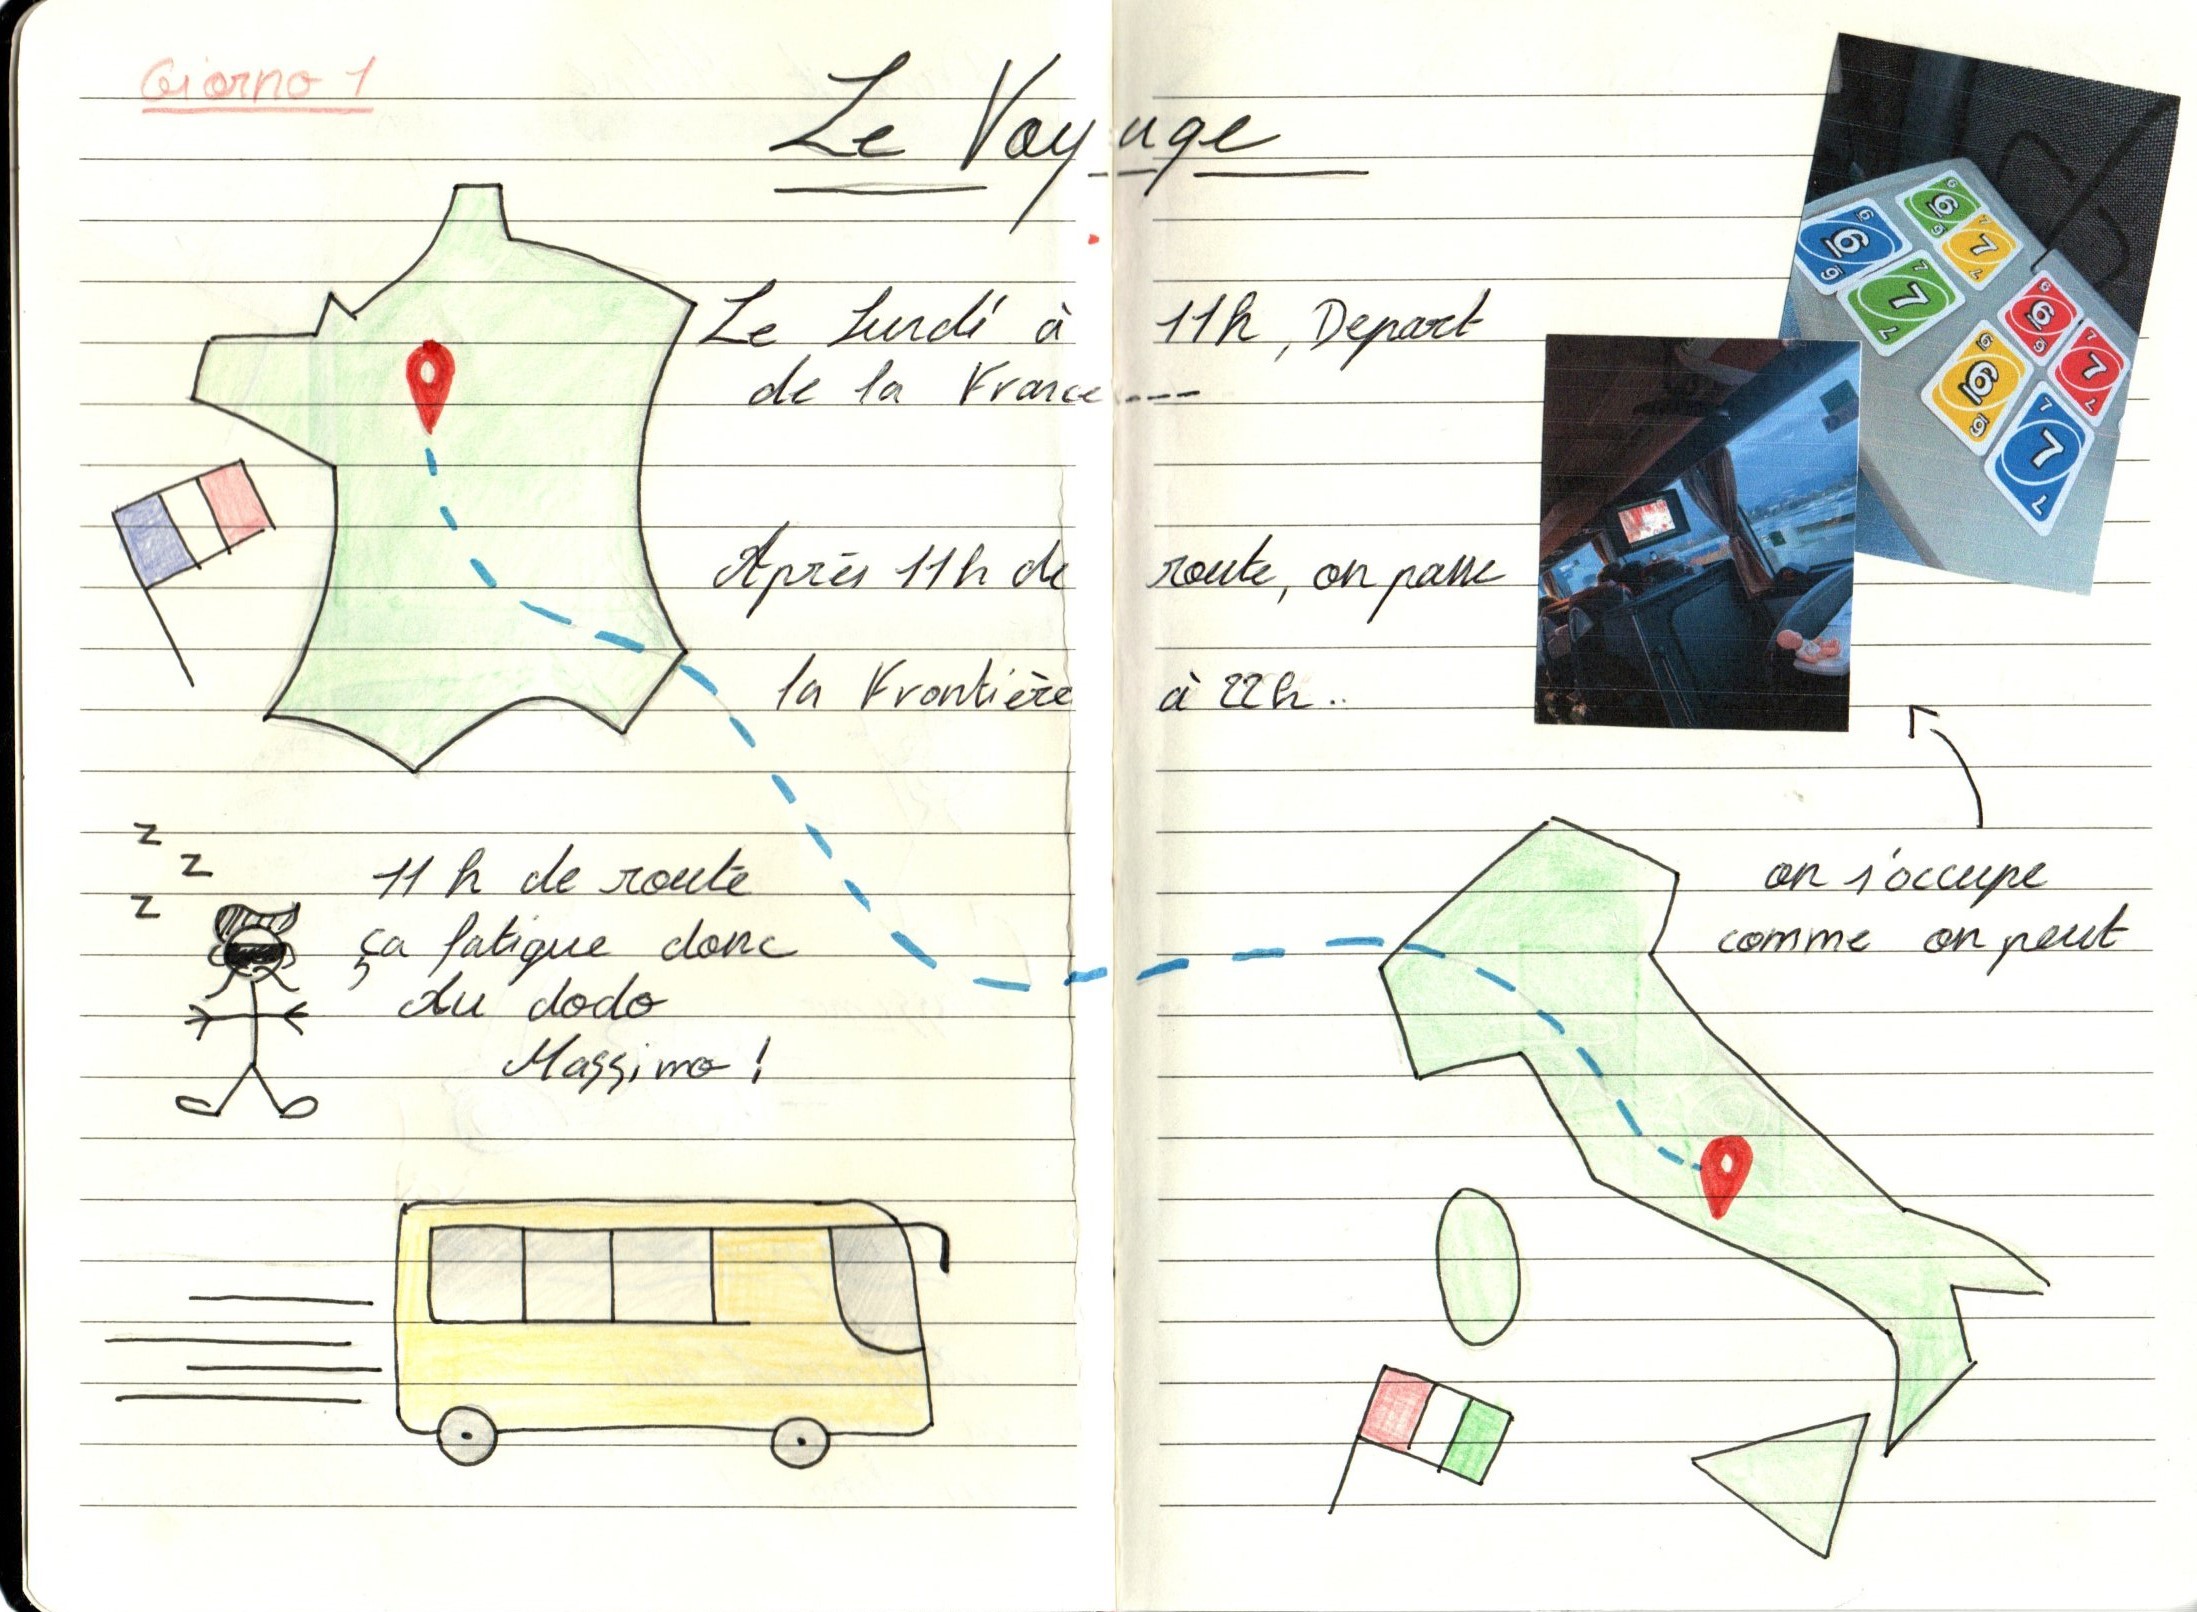 Giorno 1
Le Voyage
Le Lundi à 11h, Depart
de la France ...
Après 11h de route, on passe
la Frontière à 22h..
z
z
z
11h de route
ça fatigue donc
Au dodo
Massimo !
on s'occupe
comme on peut
6 6 6
7 7 7
6 6 6
7 7 7
6 6 6
7 7 7
6 6 6
7 7 7